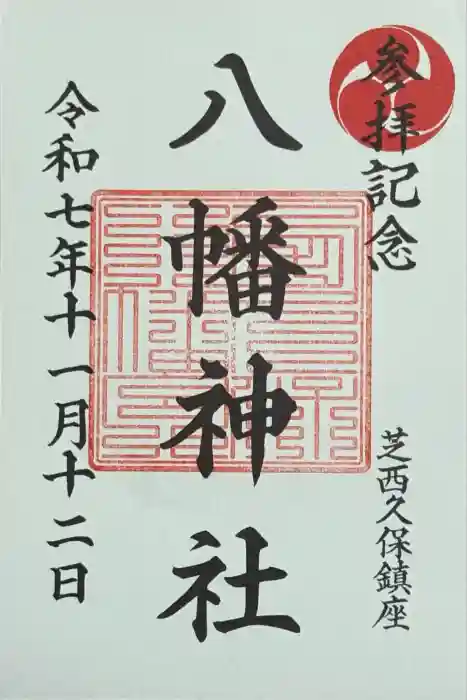 参拝記念
芝西久保鎮座
八幡神社
令和七年十一月十二日